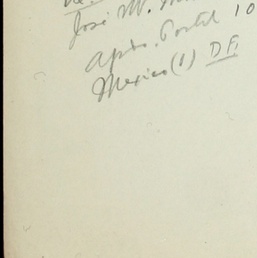 José M.
Apdo. Postal 10
Mexico (1) D.F.